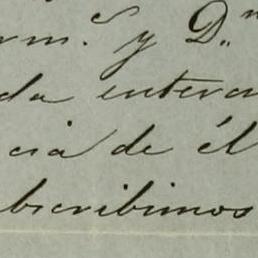 erm.ᵉ y D.ⁿ
da entera
cia de él
bscribimos